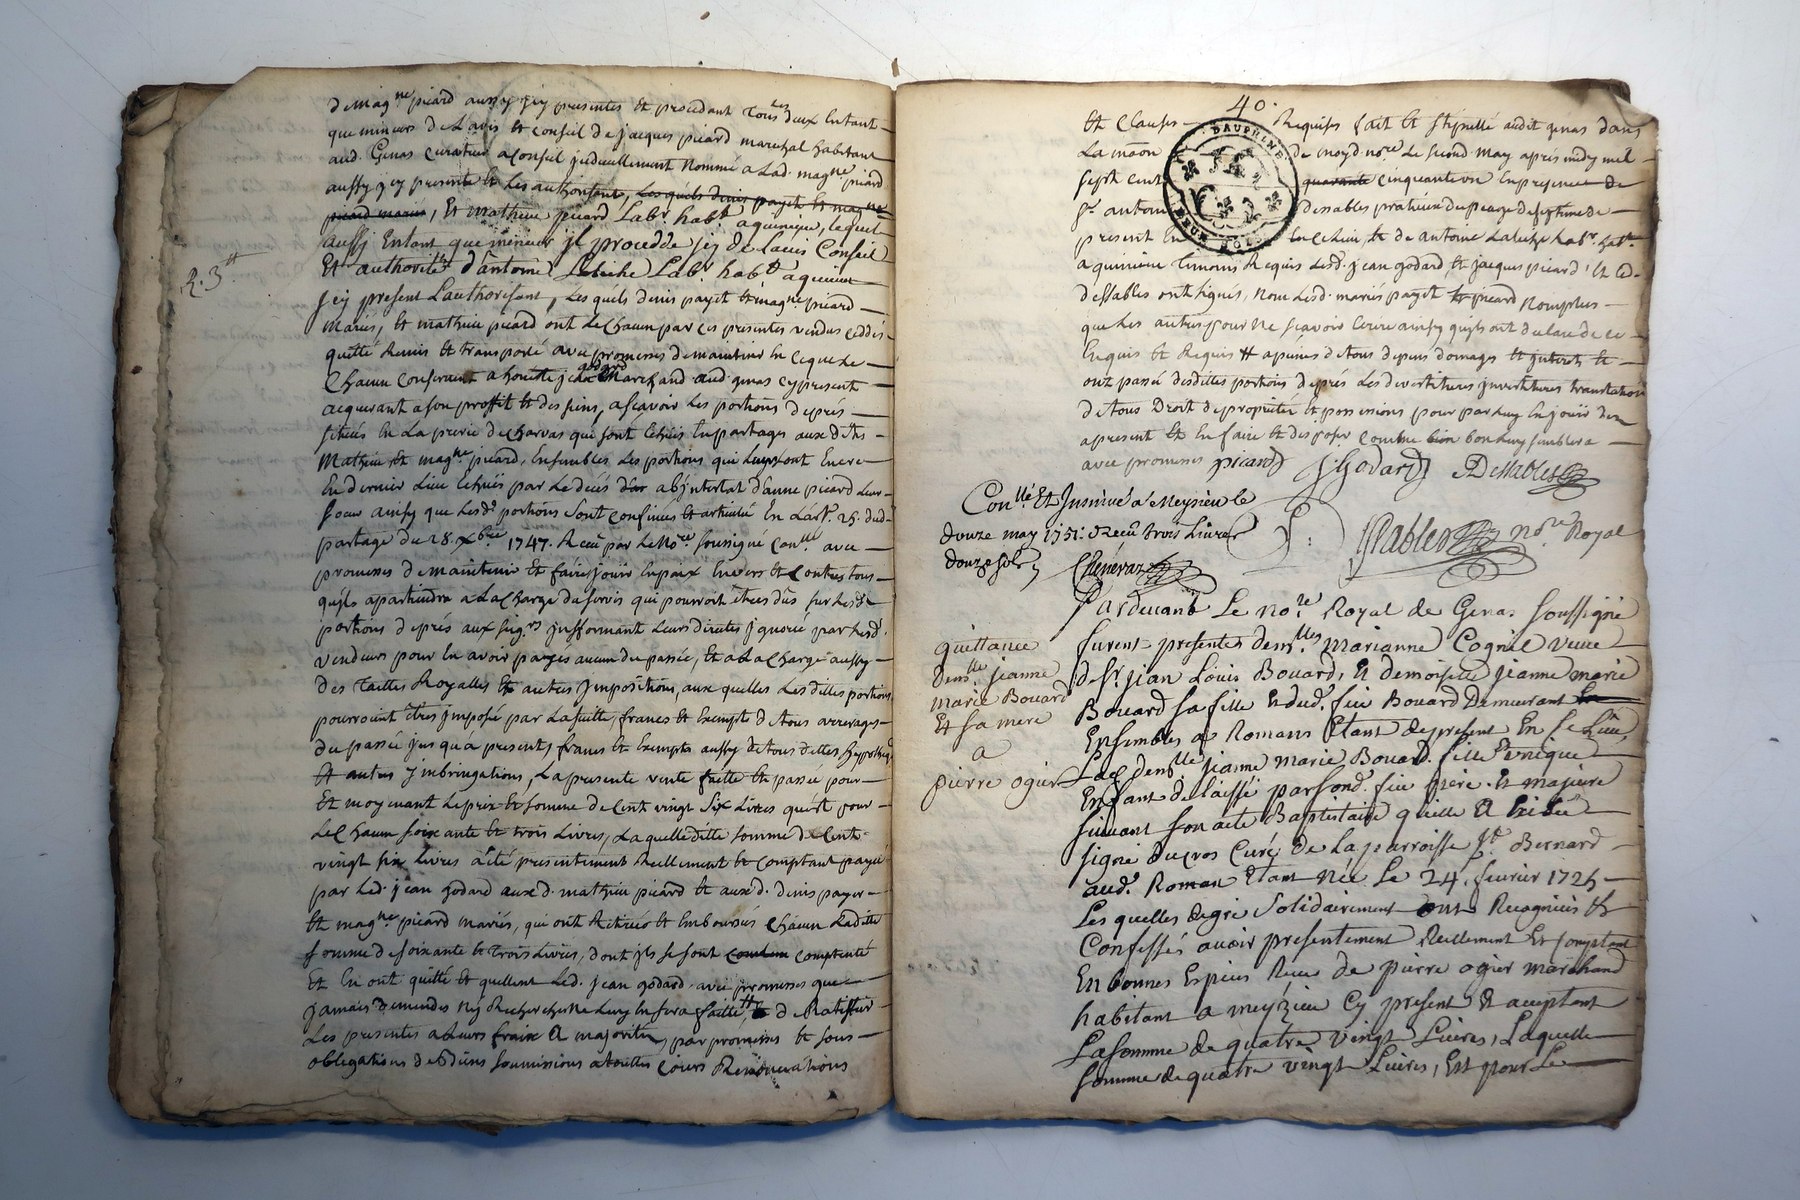 de mag.ne picard aussy jcy presentes et procedant tous les deux Entant
que mineurs de L'avis et conseil de jacques picard marechal habitant
aud. Genas curateur a conseil judiciellement Nommé a Lad. mag.ne picard
aussy jcy presente et Les authorisant, Les quels denis payet et mag.ne
picard mariés, Et mathieu picard Lab.r hab.t a quinieu, lequel
aussy Entant que mineur jl procedde jcy de lavis Conseil
Et authorité d'antoine Labiche Lab.r hab.t a quinieu
R. 3tt
jcy present L'authorisant, Les quels denis payet et mag.ne picard
mariés, Et mathieu picard ont Le Chacun par ces presentes vendus ceddés
quitté Remis et transporté avec promesses de maintenir En ce que Le
Chacun Concernant a honette jean godard Marchand aud. genas cy present
acquerant a son proffit et des siens, a scavoir Les portions de prés
situés En La prerie de Charvas qui sont Echues En partages aux dits
Mathieu et mag.ne picard, Ensembles Les portions qui Leurs sont Encore
En dernier Lieu Echues par Le decés ab jntestat d'anne picard Leur
soeur ainsy que Lesd. portions sont confinées et articulé En L'art. 25. dud.
partage du 28. Xbre 1747. Receu par Le No.re soussigné Con.llé avec
promesses de maintenir Et faire jouir En paix Envers et Contres tous
qujls apartiendra a La Charge du servis qui pourroit êtres dûs sur Lesd.
portions de prés aux seig.rs jnssormant Leurs directes jgnoré par Lesd.
vendeurs pour En avoir payés aucun du passée, Et a La Charge aussy
des Tailles Royalles et autres jmpositions, aux quelles Les dittes portions
pourroint êtres jmposé par La suitte, francs et Exempts de tous arrerages
du passée jusqu'a presents, francs et Exempts aussy de tous dettes hyppotheques
Et autres jmbringations, La presente vente faitte et passée pour
Et moyenant Le prix et somme de Cent vingt Six Livres qu'est pour
Le Chacun soixante et trois Livres, La quelle ditte somme de Cent
vingt six Livres a été presentement Reellement et Comptant payé
par Led. jean godard aux d. mathieu picard et aux d. denis payet
Et mag.ne picard mariés, qui ont Retirés et Emboursés Chacun Laditte
somme de soixante et trois Livres, dont jls se sont contenté
Et En ont quitté et quittent Led. jean godard avec promesses que
jamais demandes Ny Recherches Ne Luy En sera faitte, tt de Ratiffier
Les presentes a Leurs fraix a majorité, par promesses et sous
obligations de Biens soumissions a touttes Cours Renonciations
40.
Et Clauses Requises fait et stipullé audit genas dans
La maon de moyd. no.re Le second may après midy mil
sept cent quarante cinquante un En presence de
s.r antoine dessables praticien du peage de septime de
present En Ce Lieu et de antoine Labiche Lab.r hab.t
a quinieu Temoins Requis Lesd. jean godard et jacques picard, Et Led.
dessables ont signés, Non Lesd. mariés payet et picard Nomplus
que Les autres pour Ne scavoir Ecrire ainsy qujls ont declaré de ce
Enquis et Requis tt a peines de tous depens domages et jnterets, Et
ont passé desdittes portions de prés Les devestitures jnvestitures translation
de tous Droit de propriété Et possessions pour par Luy En jouir des
apresent Et En faire et disposer Comme bon Luy semblera
avec promesses picard J: Godard A Dessables
Con.llé Et Jnsinué a Meyzieu Le
douze may 1751. Receu trois Livres
douze sols Chéneraz
Sables no.re Royal
Pardevant Le no.re Royal de Genas soussigné
quittance
dem.lle jeanne
marie Bouard
Et sa mere
a
pierre ogier
furent presentes dem.lles Marianne Cognié veuve
de s.r jean Louis Bouard, Et demoiselle jeanne marie
Bouard sa fille Et dud. feu Bouard Demeurant
Ensembles a Romans Etant de present En Ce Lieu,
Lad. dem.lle jeanne marie Bouard fille Unique
Enfant de laissé par sond. feu père, Et majeure
suivant son acte Baptistaire quelle a Exibé
signé Ducros Curé de La parroisse S.t Bernard
aud. Roman Etant Née Le 24. fevrier 1725
Les quelles de gré solidairement ont Recognus Et
Confessés avoir presentement Reellement Et Comptant
En bonnes Especes Receu de pierre ogier marchand
habitant a meyzieu Cy present Et acceptant
La somme de quatre vingt Livres, Laquelle
somme de quatre vingt Livres, Est pour Le